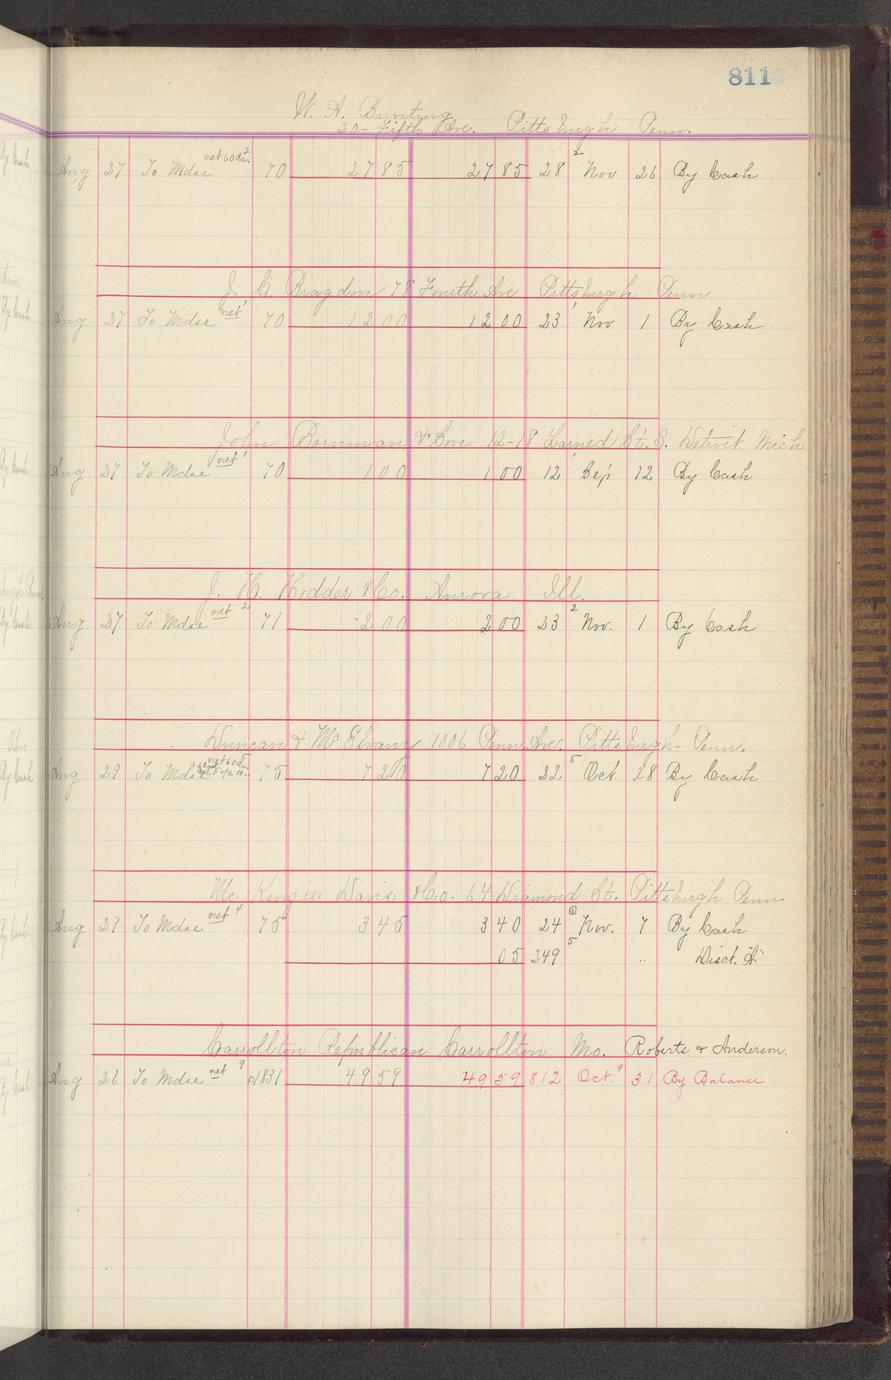 811
W. A. Bunting
20 - Fifth Ave. Pittsburgh Penn.
Aug 27 To Mdse net 60 ds. 2 70 27 85 27 85 28 2 Nov 26 By Cash
J. C. Bragdon 78 Fourth Ave Pittsburgh Penn
Aug 27 To Mdse net 1 70 12 00 12 00 23 1 Nov 1 By Cash
John Bornman & Son 12-18 Larned St. S. Detroit Mich
Aug 27 To Mdse net 1 70 1 00 1 00 12 Sep 12 By Cash
J. H. Hodder & Co. Aurora Ill.
Aug 27 To Mdse net 2 71 2 00 2 00 23 2 Nov. 1 By Cash
Duncan & McElvany 1006 Penn Ave. Pittsburgh - Penn.
Aug 29 To Mdse net 60 ds. 75 7 20 7 20 22 5 Oct. 28 By Cash
McKenzie Davis & Co. 64 Diamond St. Pittsburgh Penn.
Aug 29 To Mdse net 4 75 3 45 3 40 24 Nov. 7 By Cash
05 249 5 " Disct.
Carrollton Republican Carrollton Mo. Roberts & Anderson.
Aug 26 To Mdse net 9 1831 49 59 49 59 812 Oct. 9 31 By Balance